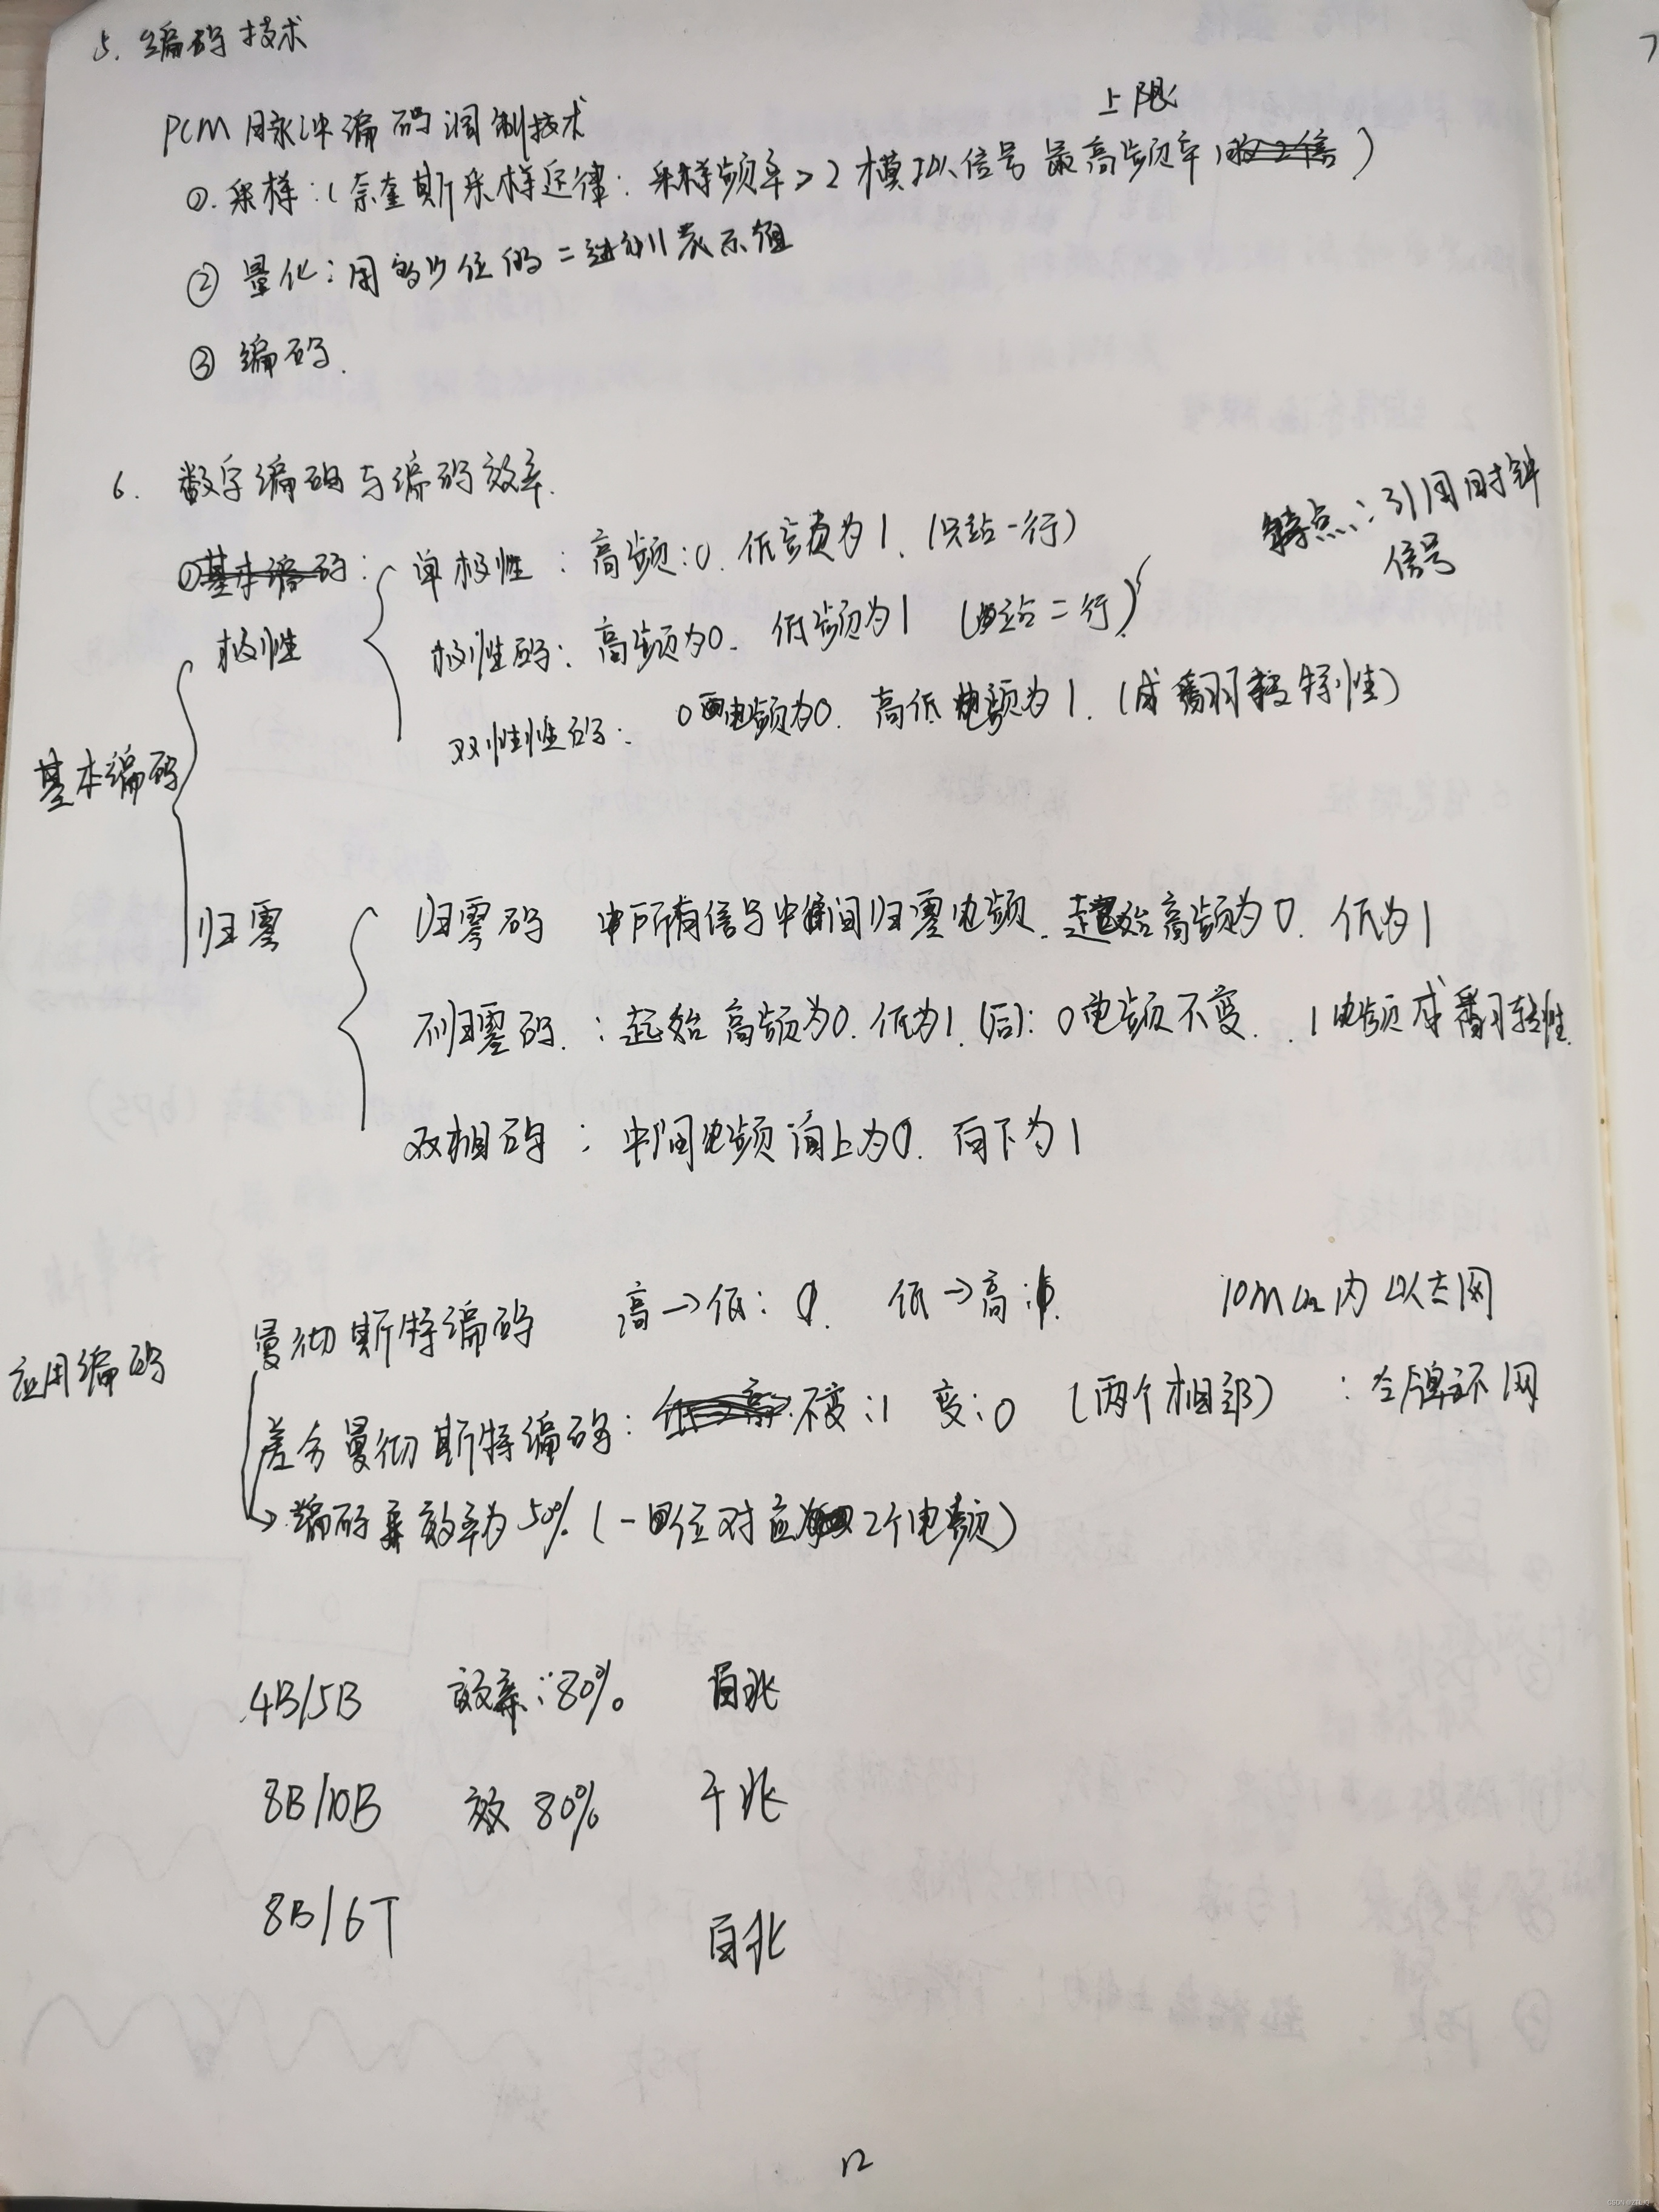 5. 编码技术
上限
PCM 脉冲编码调制技术
①. 采样:(奈奎斯采样定律: 采样频率>2模拟信号最高频率)
② 量化:用多少位的二进制表示值
③ 编码.
6. 数字编码与编码效率.
特点:引用时钟
信号
单极性:高频:0. 低频为1.(只站一行)
极性
极性码:高频为0. 低频为1(站二行)
双性性码: 0电频为0. 高低电频为1.(成翻转特性)
基本编码
归零
归零码 所有信号中间归零电频. 起始高频为0. 低为1
不归零码.:起始高频为0. 低为1.(后): 0电频不变. 1电频成翻转性.
双相码:中间电频向上为0. 向下为1
应用编码
曼彻斯特编码 高→低: 低→高: 10M 内以太网
差分曼彻斯特编码: 不变:1 变:0(两个相邻):令牌环网
→编码效率为50%(一位对应2个电频)
4B/5B 效率:80% 百兆
8B/10B 效80% 千兆
8B/6T 百兆
12
CSDN